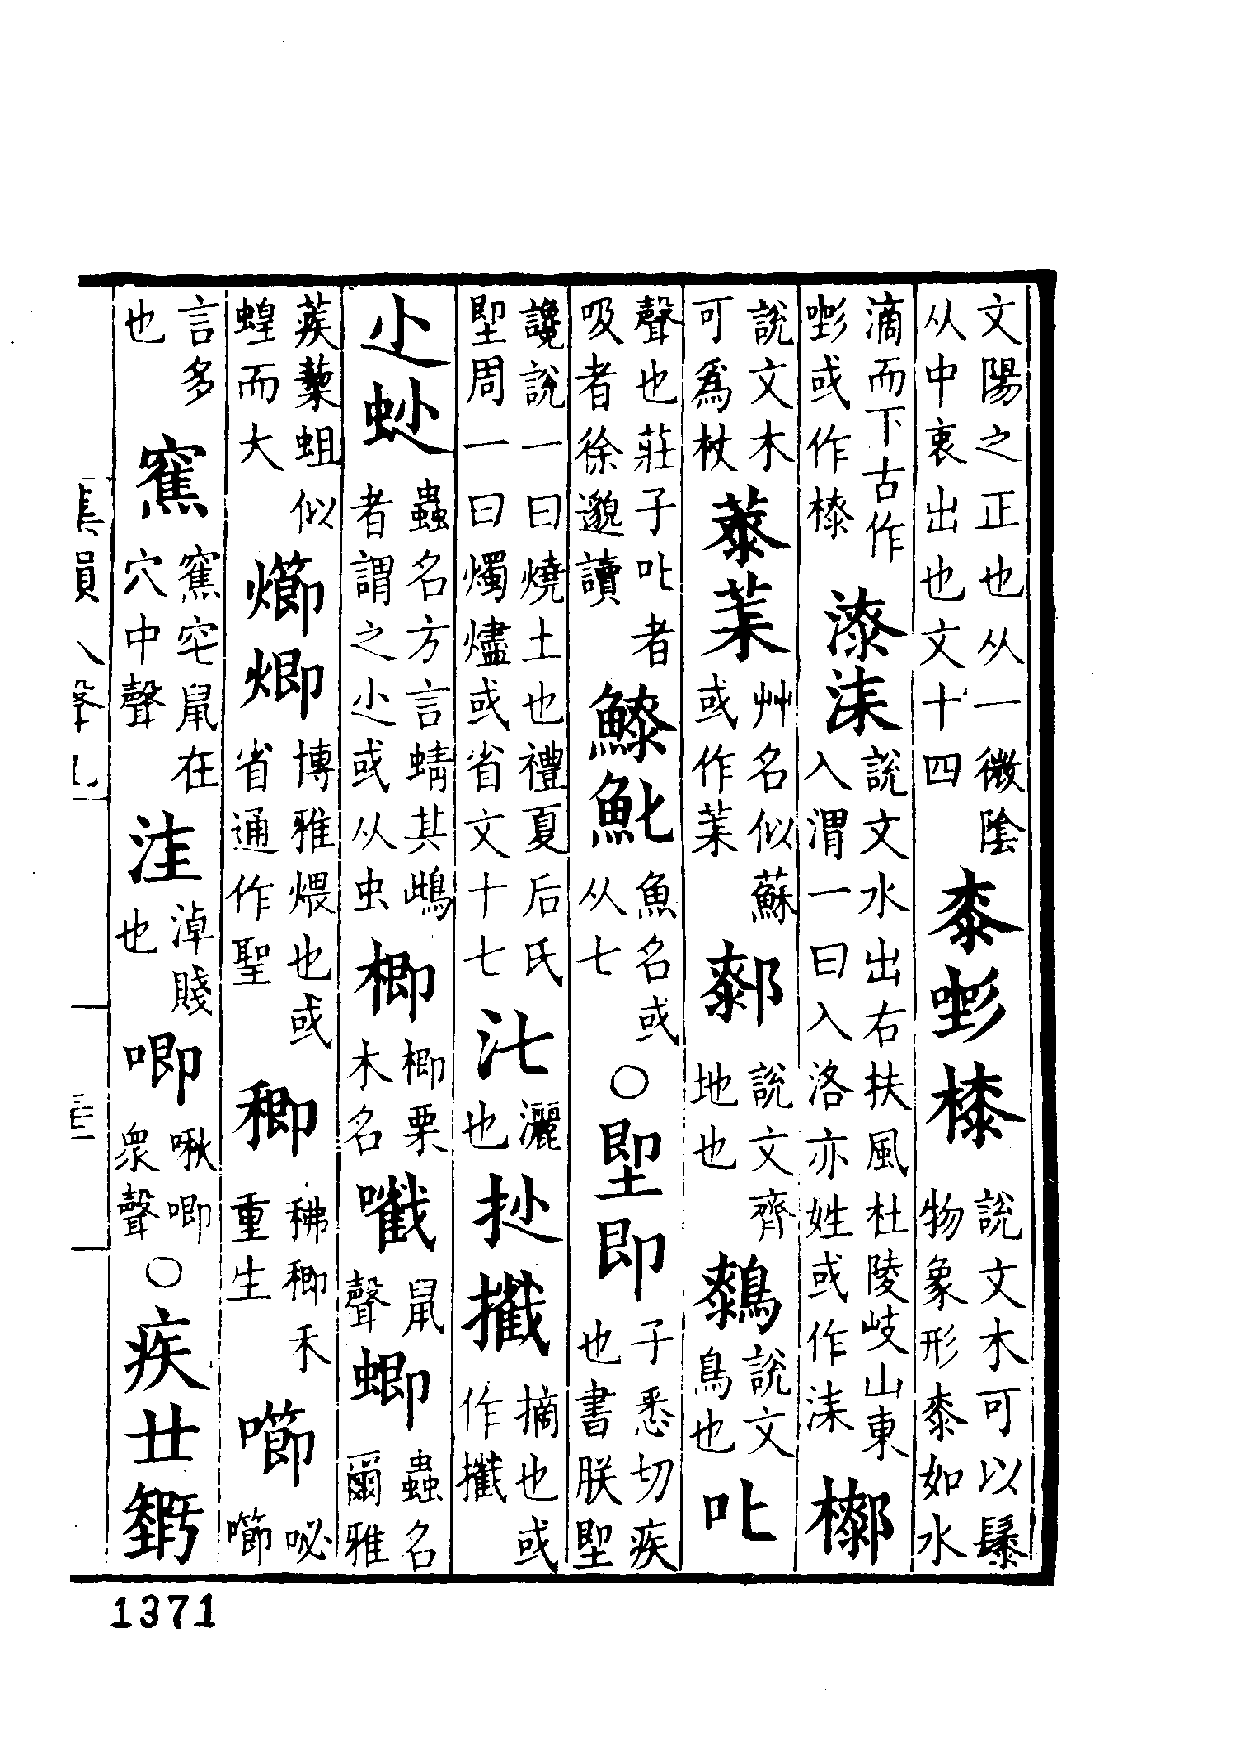 文陽之正也从一微陰从中衺出也文十四 桼 說文木可以䰍物象形桼如水
滴而下古作或作 漆 說文水出右扶風杜陵岐山東入渭一曰入洛亦姓或作
說文木可爲杖 艸名似蘇或作 說文齊地也 說文鳥也 叱
聲也莊子叱者吸者徐邈讀 魚名或从七 ○堲即 子悉切疾也書朕堲
讒說一曰燒土也禮夏后氏堲周一曰燭燼或省文十七 灑也 摘也或作
尐 蟲名方言蜻其鴟者謂之尐或从虫 楖 楖栗木名 鼠聲 蝍 蟲名爾雅
蒺藜蛆似蝗而大 博雅煨也或省通作聖 禾重生 咇
言多也 窋鼠在穴中聲 淖賤也 唧 啾唧衆聲 ○疾廿
集韻入聲九
1371